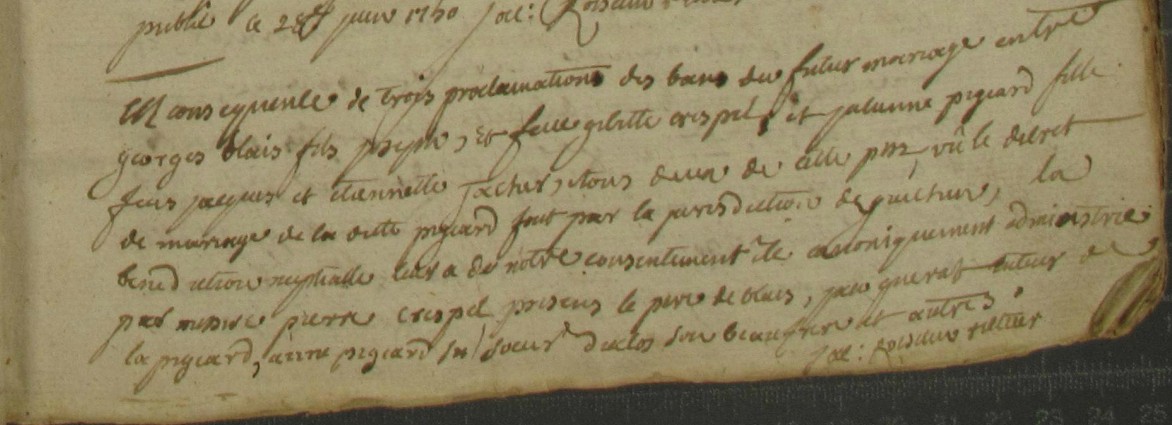 publié le 28 juin 1750 Jac:
En consequence de trois proclamations des bans du futur mariage entre
georges blais fils joseph, et feue gilette crespel, et jeanne pigeard fille
feus jacques et etiennette tous deux de cette psse, vû le decret
de mariage de la ditte pigeard fait par la jurisdiction de
bened iction nuptialle leur a de notre consentement été canoniquement administrée la
par messire pierre crespel presens le pere de blais, tuteur de
la pigeard, pigeard sa soeur son beaufrere et autres.
Jac: recteur